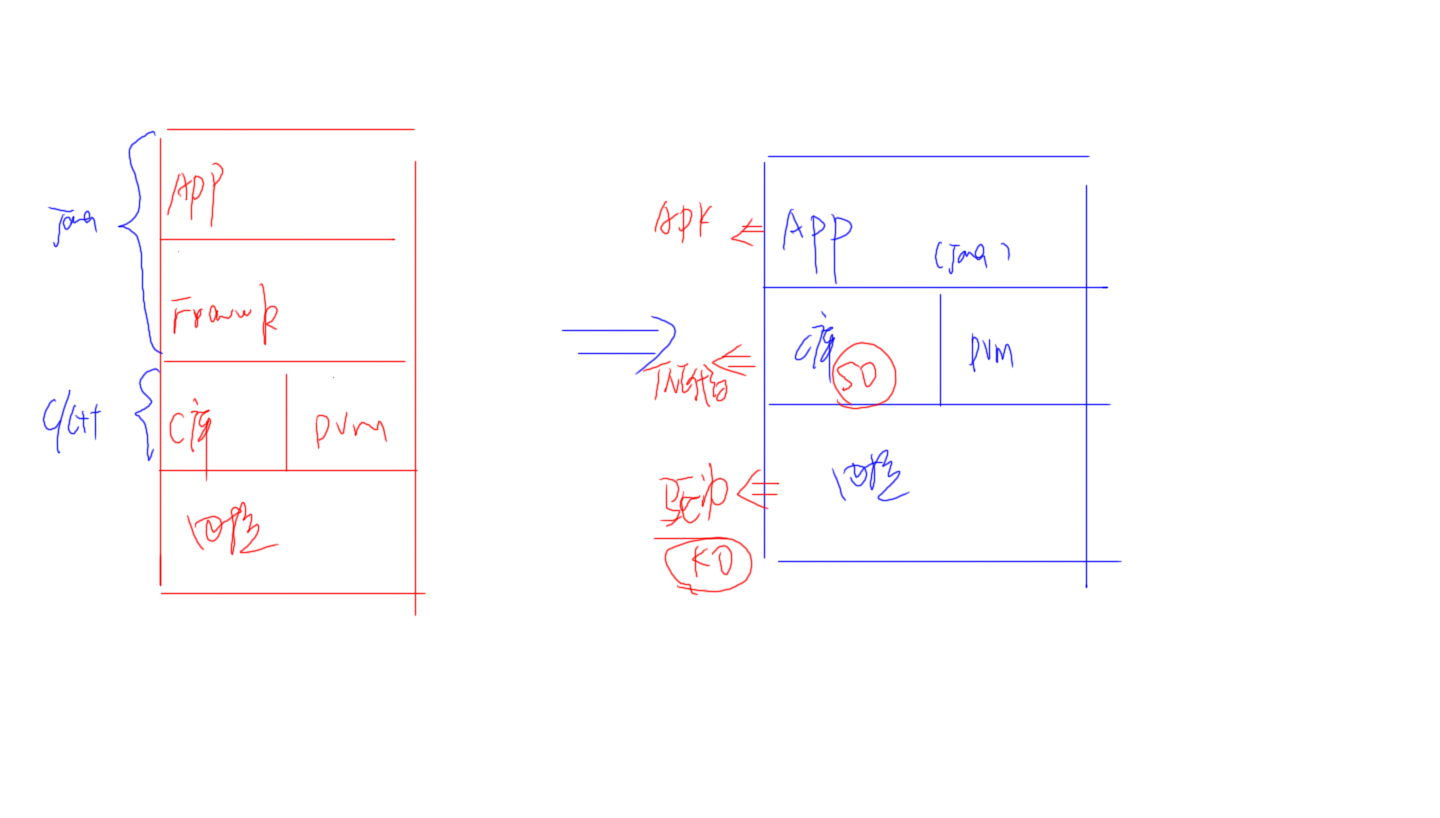 Java
APP
Framwk
C/C++
C库
DVM
内核
APK
APP
(Java)
JNI代码
C库
SO
DVM
驱动
KO
内核